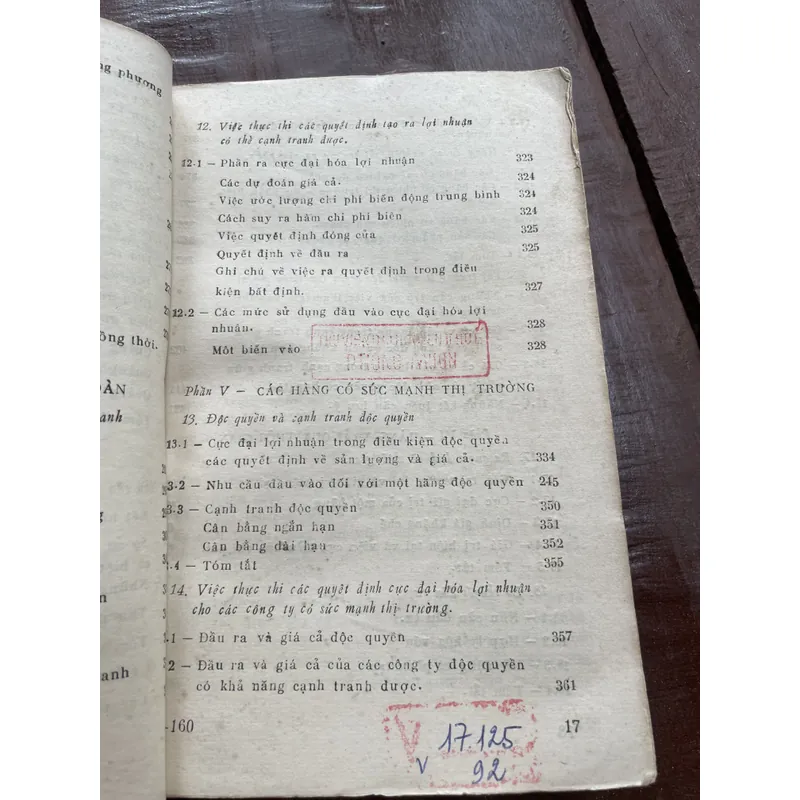 ng phương
12. Việc thực thi các quyết định tạo ra lợi nhuận
có thể cạnh tranh được.
12.1 — Phần ra cực đại hóa lợi nhuận 323
Các dự đoán giá cả. 324
Việc ước lượng chi phí biến động trung bình 324
Cách suy ra hàm chi phí biên 324
Việc quyết định đóng cửa 325
Quyết định về đầu ra 325
Ghi chú về việc ra quyết định trong điều
kiện bất định. 327
12.2 — Các mức sử dụng đầu vào cực đại hóa lợi
nhuận. 328
Một biến vào 328
ồng thời.
Phần V — CÁC HÃNG CÓ SỨC MẠNH THỊ TRƯỜNG
13. Độc quyền và cạnh tranh độc quyền
13.1 — Cực đại lợi nhuận trong điều kiện độc quyền
các quyết định về sản lượng và giá cả. 334
3.2 — Nhu cầu đầu vào đối với một hãng độc quyền 245
3.3 — Cạnh tranh độc quyền 350
Cân bằng ngắn hạn 351
Cân bằng dài hạn 352
.4 — Tóm tắt 355
14. Việc thực thi các quyết định cực đại hóa lợi nhuận
cho các công ty có sức mạnh thị trường.
.1 — Đầu ra và giá cả độc quyền 357
2 — Đầu ra và giá cả của các công ty độc quyền
có khả năng cạnh tranh được. 361
anh
-160 17
V 17.125
V 92